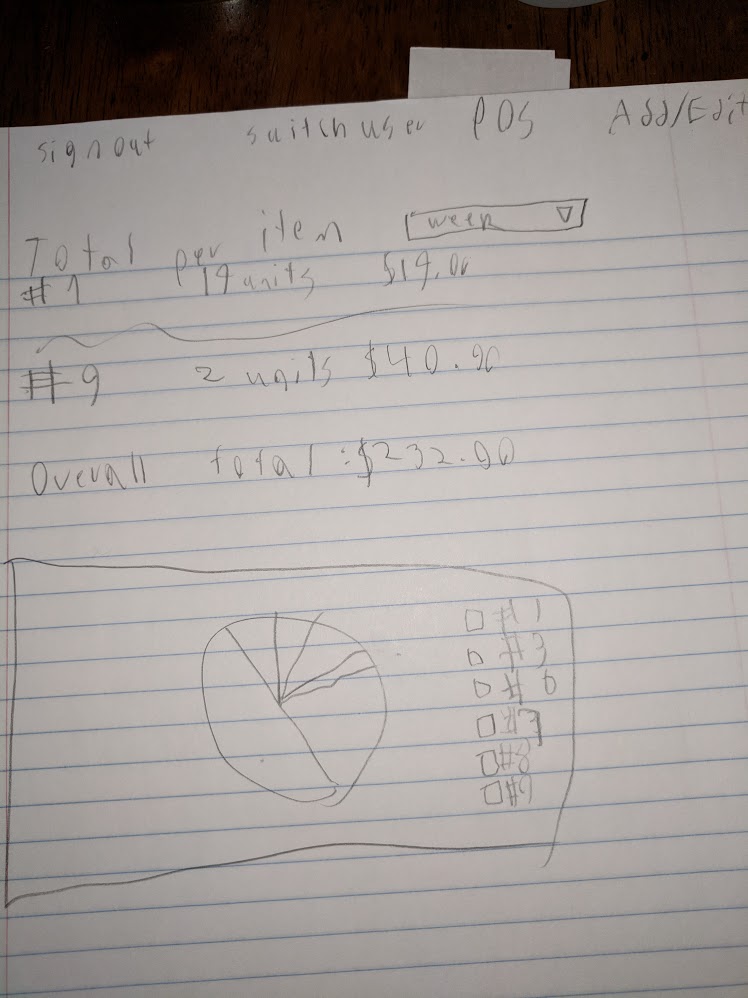 sign out switch user POS Add/Edit
Total per item week
#1 19 units $19.00
#9 2 units $40.90
Overall total: $232.00
#1
#3
#6